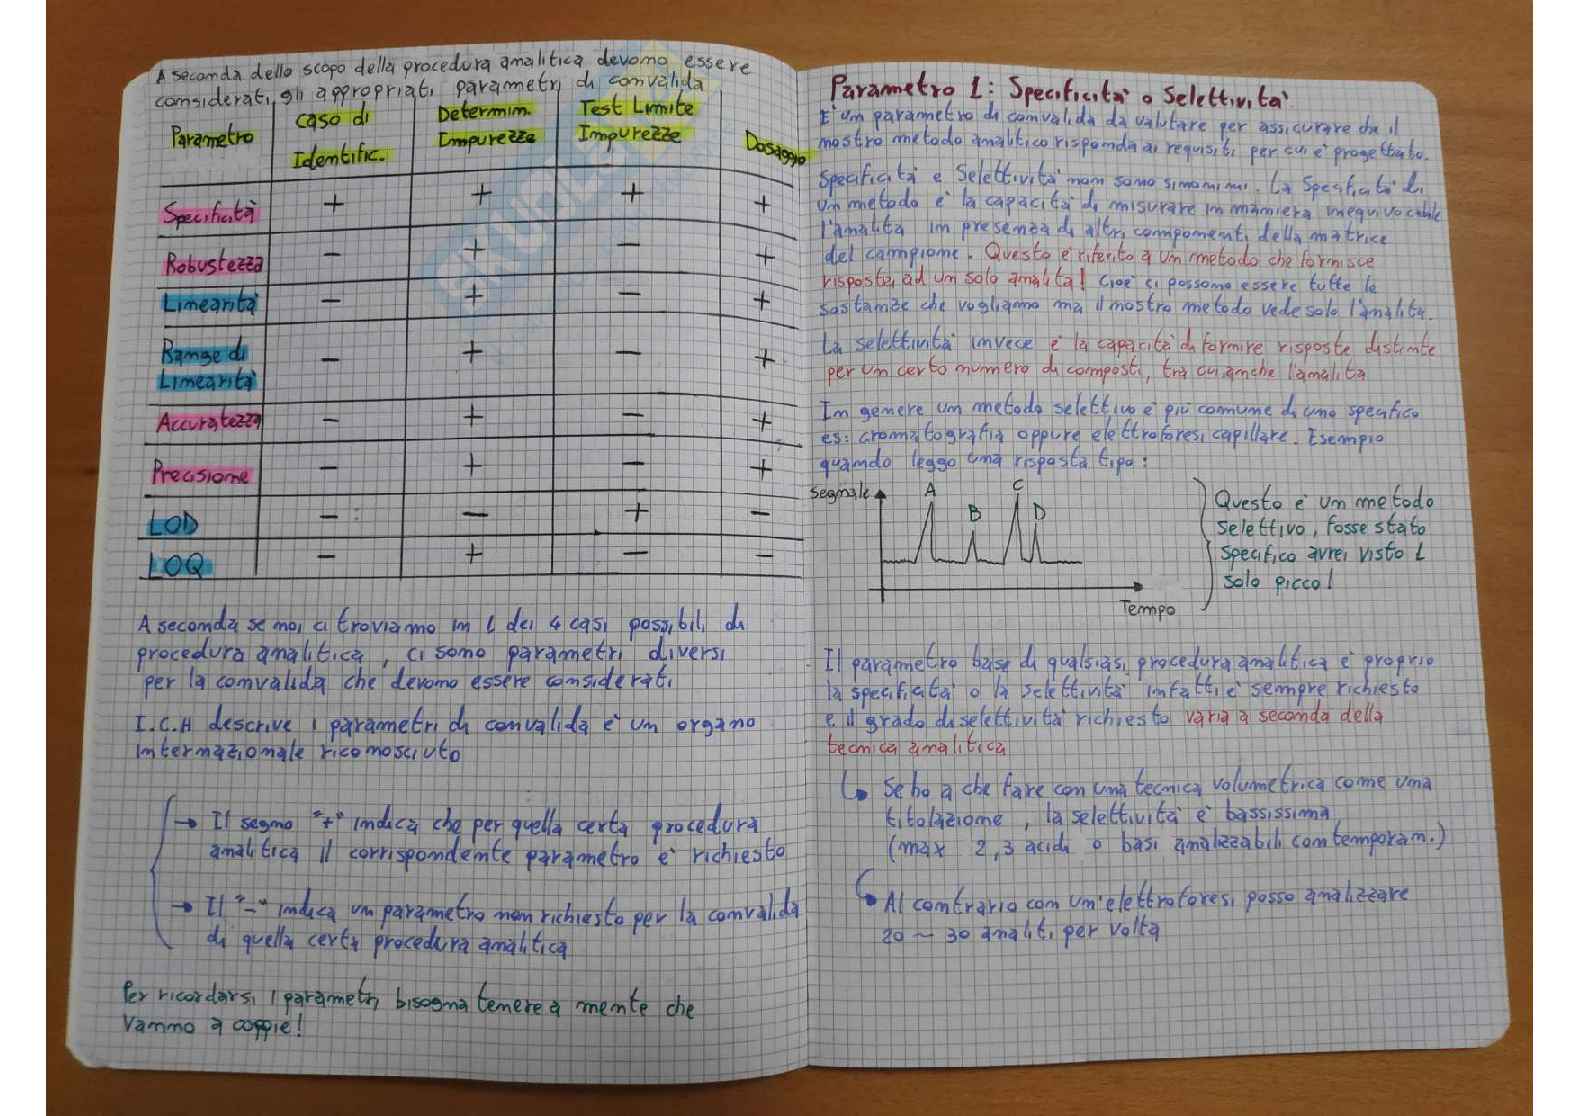 A seconda dello scopo della procedura analitica devono essere
considerati gli appropriati parametri di convalida
Parametro
caso di Identific.
Determin. Impurezze
Test Limite Impurezze
Dosaggio
Specificità + + + +
Robustezza - + - +
Linearità - + - +
Range di Linearità - + - +
Accuratezza - + - +
Precisione - + - +
LOD - - + -
LOQ - + - -
A seconda se noi ci troviamo in 1 dei 4 casi possibili di
procedura analitica, ci sono parametri diversi
per la convalida che devono essere considerati
I.C.H descrive i parametri di convalida è un organo
internazionale riconosciuto
→ Il segno "+" indica che per quella certa procedura
analitica il corrispondente parametro è richiesto
→ Il "-" indica un parametro non richiesto per la convalida
di quella certa procedura analitica
Per ricordarsi i parametri bisogna tenere a mente che
vanno a coppie!
Parametro 1: Specificità o Selettività
E' un parametro di convalida da valutare per assicurare che il
nostro metodo analitico risponda ai requisiti per cui è progettato.
Specificità e Selettività non sono sinonimi. La Specificità di
un metodo è la capacità di misurare in maniera inequivocabile
l'analita in presenza di altri componenti della matrice
del campione. Questo è riferito a un metodo che fornisce
risposta ad un solo analita! Cioè ci possono essere tutte le
sostanze che vogliamo ma il nostro metodo vede solo l'analita.
La selettività invece è la capacità di fornire risposte distinte
per un certo numero di composti, tra cui anche l'analita
In genere un metodo selettivo è più comune di uno specifico
es: cromatografia oppure elettroforesi capillare. Esempio
quando leggo una risposta tipo:
Segnale
A
B
C
D
Tempo
Questo è un metodo
selettivo, fosse stato
specifico avrei visto 1
solo picco!
Il parametro base di qualsiasi procedura analitica è proprio
la specificità o la selettività infatti è sempre richiesto
e il grado di selettività richiesto varia a seconda della
tecnica analitica
↳ Se ho a che fare con una tecnica volumetrica come una
titolazione, la selettività è bassissima
(max 2,3 acidi o basi analizzabili contemporam.)
↳ Al contrario con un'elettroforesi posso analizzare
20 ~ 30 analiti per volta